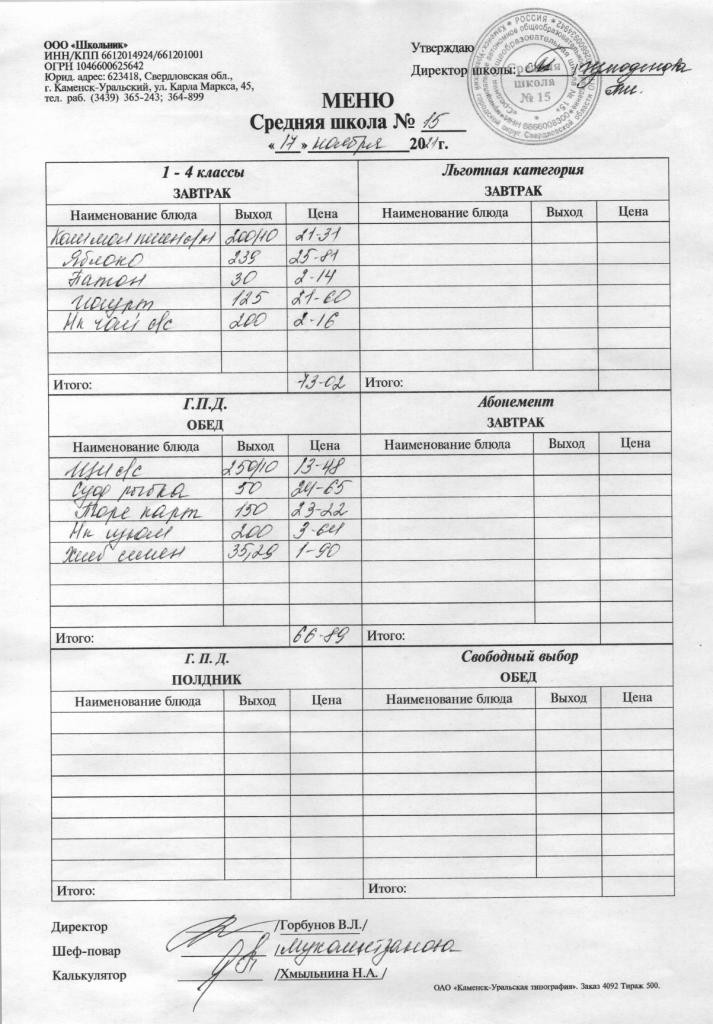 ООО «Школьник»
ИНН/КПП 6612014924/661201001
ОГРН 1046600625642
Юрид. адрес: 623418, Свердловская обл.,
г. Каменск-Уральский, ул. Карла Маркса, 45,
тел. раб. (3439) 365-243; 364-899
Утверждаю
Директор школы:
Средняя школа № 15
МЕНЮ
Средняя школа № 15
« 17 » ноября 2021 г.
1 - 4 классы
ЗАВТРАК
Наименование блюда Выход Цена
200/10 21-31
Яблоко 239 25-81
Батон 30 2-14
Йогурт 125 21-60
Нк чай с/с 200 2-16
Итого: 73-02
Льготная категория
ЗАВТРАК
Наименование блюда Выход Цена
Итого:
Г.П.Д.
ОБЕД
Наименование блюда Выход Цена
Щи с/с 250/10 13-48
Суф рыбка 50 24-65
Пюре карт 150 23-22
Нк изюм 200 3-64
Хлеб 35,29 1-90
Итого: 66-89
Абонемент
ЗАВТРАК
Наименование блюда Выход Цена
Итого:
Г. П. Д.
ПОЛДНИК
Наименование блюда Выход Цена
Итого:
Свободный выбор
ОБЕД
Наименование блюда Выход Цена
Итого:
Директор /Горбунов В.Л./
Шеф-повар
Калькулятор /Хмыльнина Н.А. /
ОАО «Каменск-Уральская типография». Заказ 4092 Тираж 500.